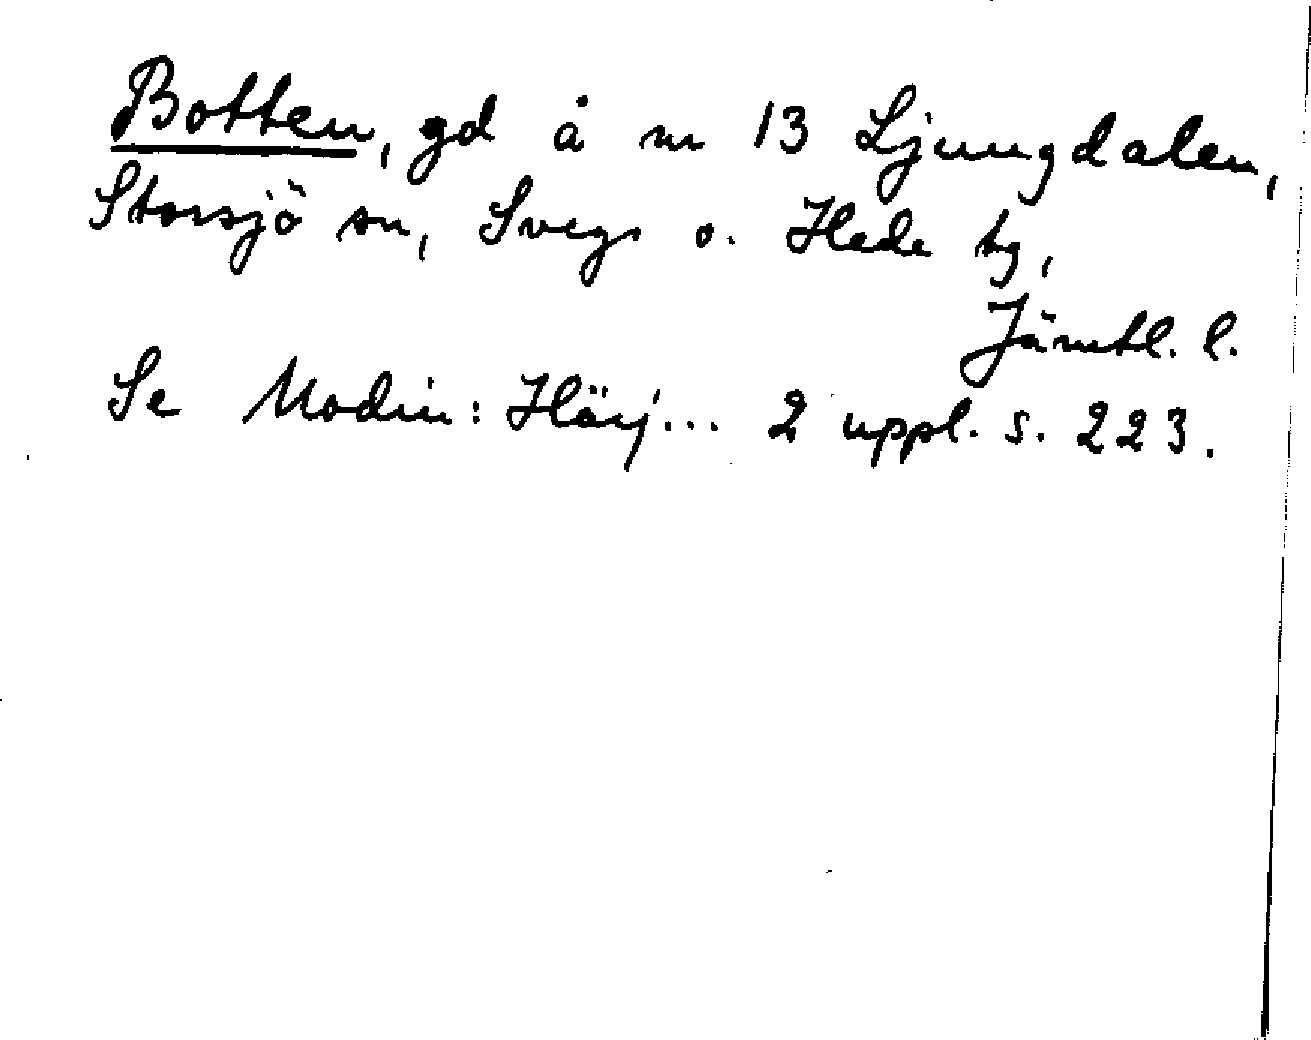 Botten, gd å nr 13 Ljungdalen,
Storsjö sn, Svegs o. Hede tg,
Jämtl. l.
Se Modin: Härj... 2 uppl. s. 223.